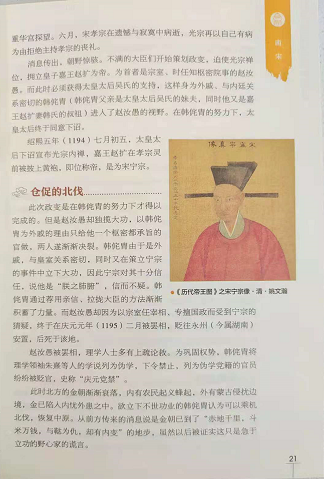 重华宫探望。六月，宋孝宗在遗憾与寂寞中病逝，光宗再以自己有病
为由拒绝主持孝宗的丧礼。
消息传出，朝野惊骇。不满的大臣们开始策划政变，迫使光宗禅
位，拥立皇子嘉王赵扩为帝。为首者是宗室、时任知枢密院事的赵汝
愚。而此时必须获得太皇太后吴氏的支持，这样身为外戚、与内廷关
系密切的韩侂胄（韩侂胄父亲是太皇太后吴氏的妹夫，同时他又是嘉
王赵扩妻韩氏的叔祖）进入了赵汝愚的视野。在韩侂胄的努力下，太
皇太后终于同意下诏。
绍熙五年（1194）七月初五，太皇太
后下诏宣布光宗内禅，嘉王赵扩在孝宗灵
前被披上黄袍，即位称帝，是为宋宁宗。
仓促的北伐
此次政变是在韩侂胄的努力下才得以
完成的。但是赵汝愚却独揽大功，以韩侂
胄为外戚的理由只给他一个枢密都承旨的
官做，两人遂渐渐决裂。韩侂胄由于是外
戚，与皇室关系密切，同时又在策立宁宗
的事件中立下大功，因此宁宗对其十分信
任，说他是“朕之肺腑”，信而不疑。韩
侂胄通过荐用亲信、拉拢大臣的方法渐渐
积蓄了力量。而赵汝愚却因为以宗室任宰相，专擅国政而受到宁宗的
猜疑，终于在庆元元年（1195）二月被罢相，贬往永州（今属湖南）
安置，后死于该地。
赵汝愚被罢相，理学人士多有上疏论救。为巩固权势，韩侂胄将
理学领袖朱熹等人的学说列为伪学，下令禁止，列为伪学党籍的官员
纷纷被贬官，史称“庆元党禁”。
此时北方的金朝渐渐衰落，内有农民起义蜂起，外有蒙古侵扰边
境，金已陷入内忧外患之中。欲立下不世功业的韩侂胄认为可以乘机
北伐，恢复中原。从前方传来的消息说是金朝已到了“赤地千里，斗
米万钱，与鞑为仇，却有内变”的地步，虽然以后被证实这只是急于
立功的野心家的谎言。
南宋
《历代帝王图》之宋宁宗像·清·姚文瀚
21